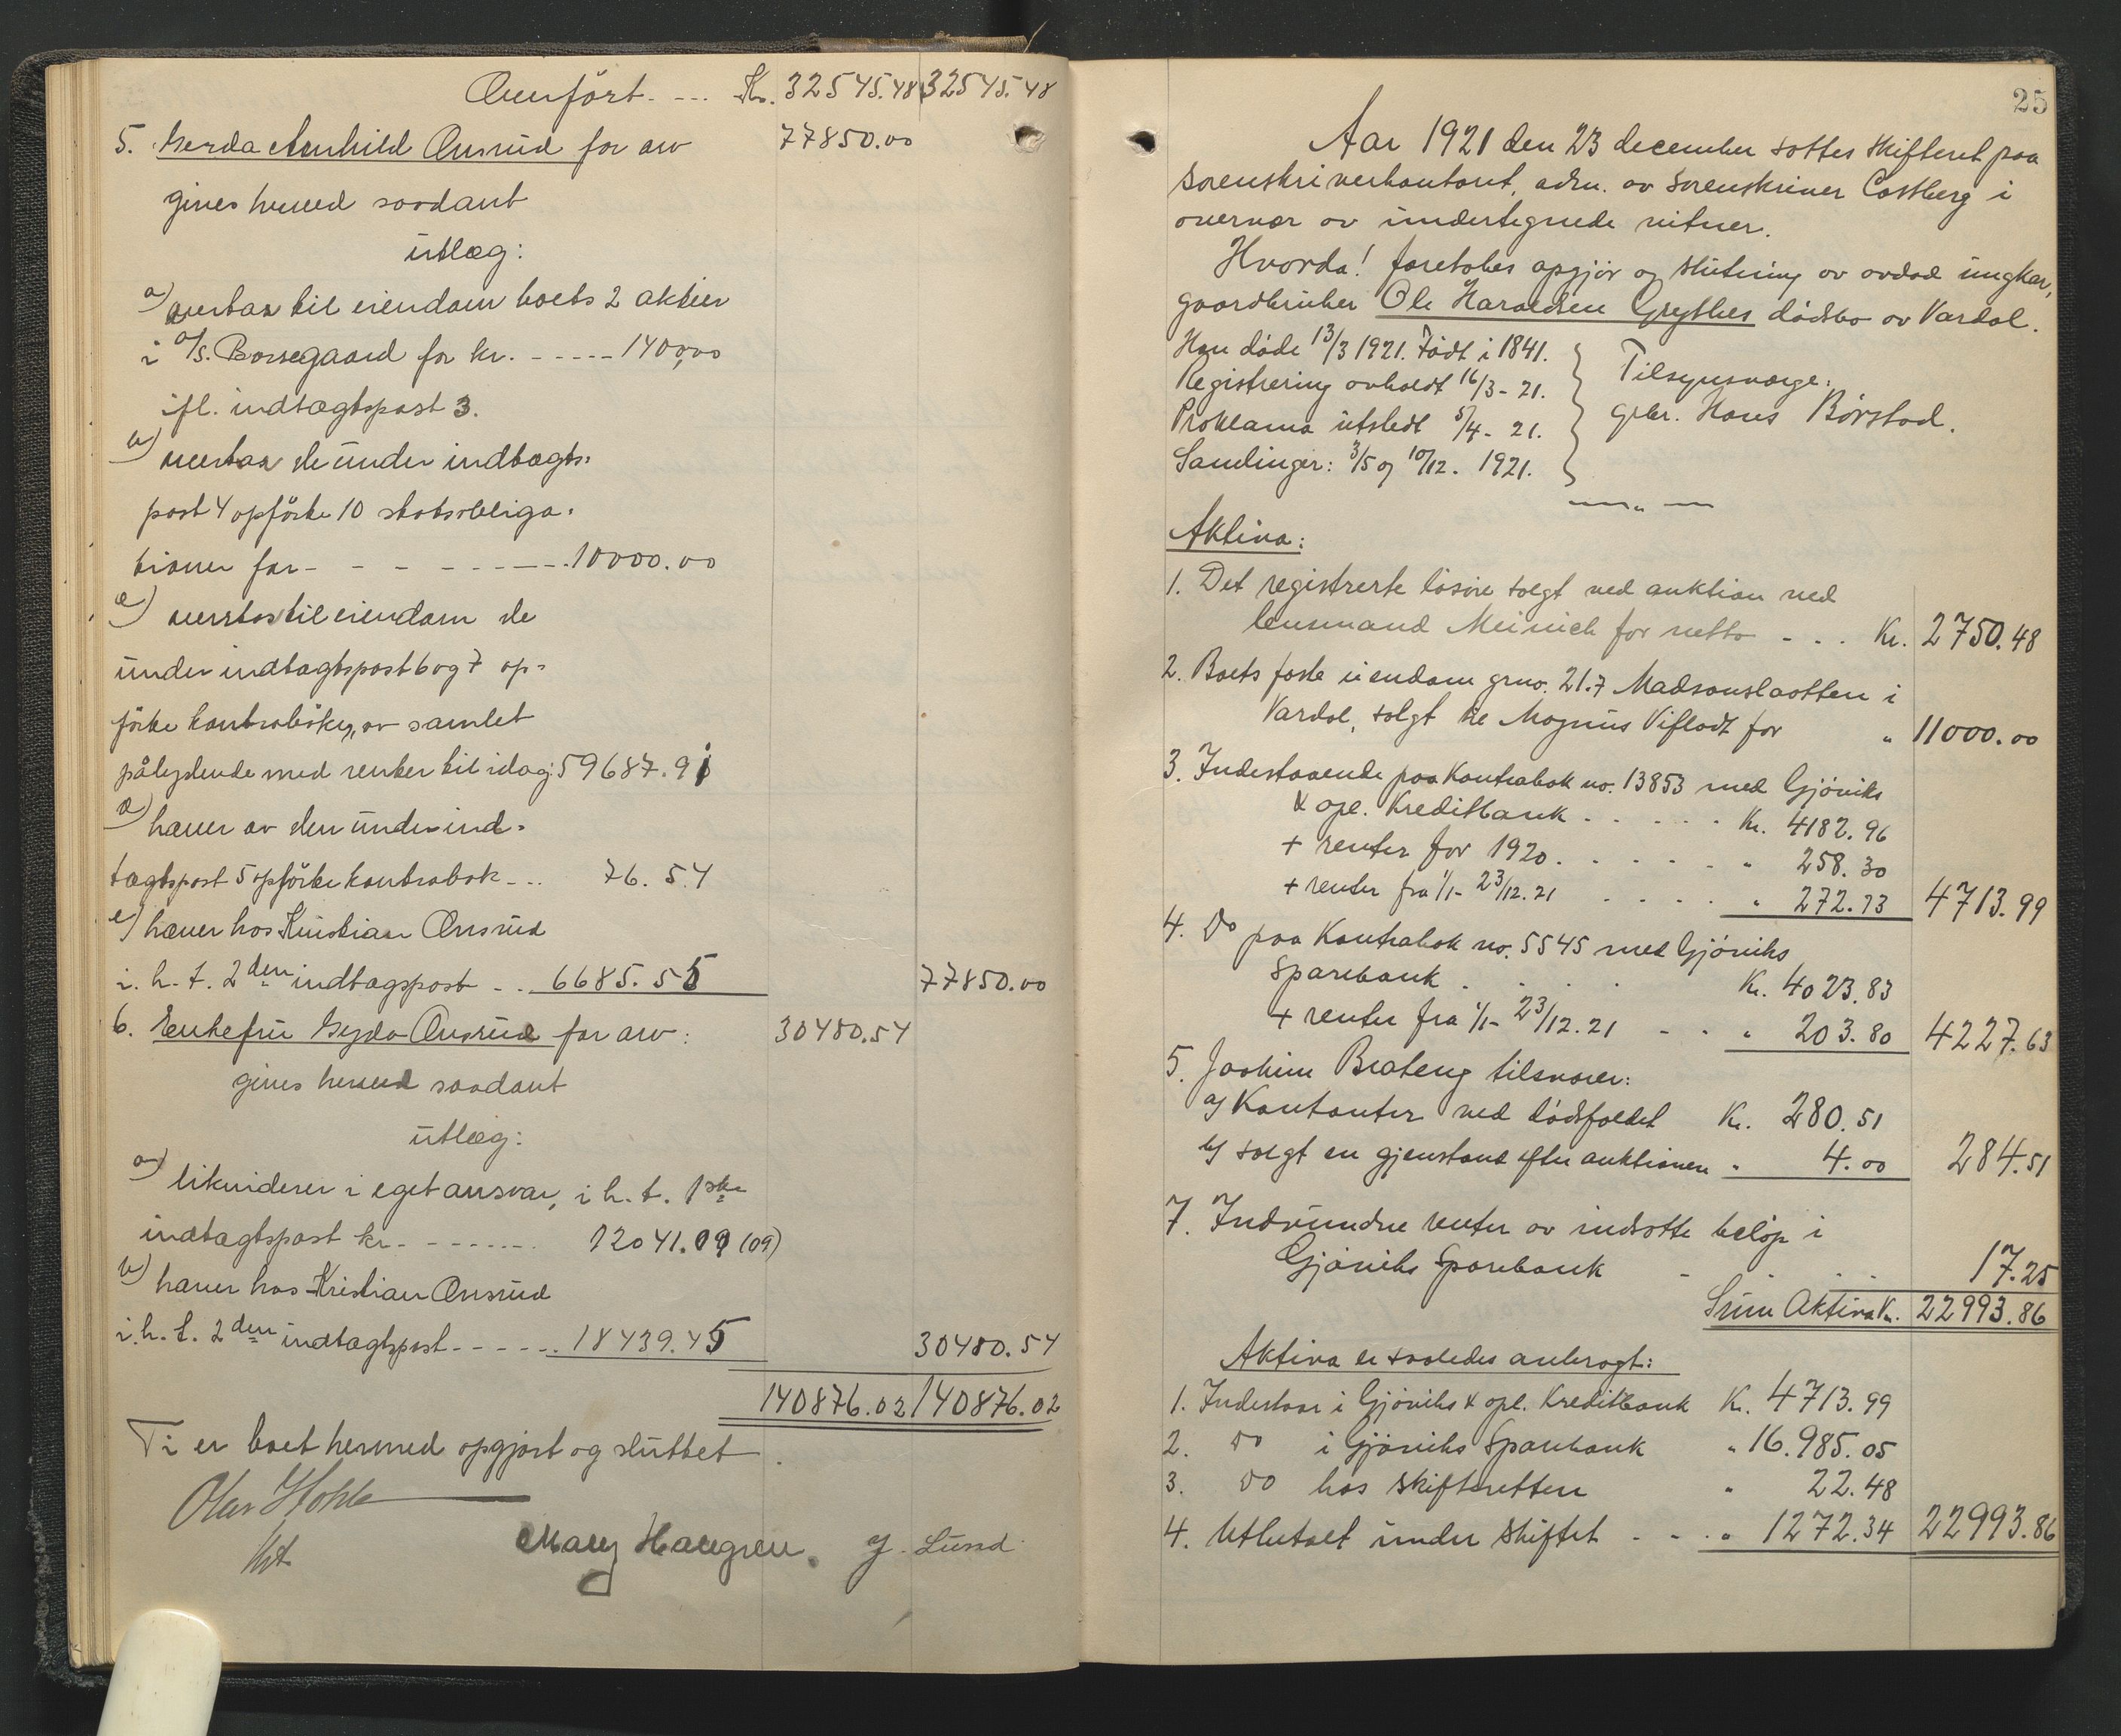 Overført. - -- Kr. 32545.48 32545.48
5. Gerda Arnhild Onsrud for arv 77850.00
gives herved saadant
utlæg:
a) overtar til eiendom boets 2 aktier
i A/S. Borregaard for kr. - - - - - 1400,00
ifl. indtægtspost 3.
b) overtar de under indtægts=
post 4 opførte 10 statsobliga=
tioner for - - - - - - - - 10000.00
c) overtar til eiendom de
under indtægtspost 6 og 7 op=
førte kontrabøker, av samlet
pålydende med renter til idag: 59687.91
d) hæver av den under ind=
tægtspost 5 opførte kontrabok - .. 76.54
e) hæver hos Kristian Onsrud
i. h. t. 2den indtægtspost - .. 6685.55 77850.00
6. Enkefru Gyda Onsrud for arv: 30480.54
gives herved saadant
utlæg:
a) likviderer i eget ansvar, i h. t. 1ste
indtægtspost kr. - - - - - - - 12041.09 (09)
b) hæver hos Kristian Onsrud
i. h. t. 2den indtægtspost - - - - - . 18439.45 30480.54
140876.02 140876.02
Ti er boet hermed opgjort og sluttet
Mary Haugren. J. Lund
25
Aar 1921 den 23 december sattes skifteret paa
sorenskriverkontoret, adm. av sorenskriver Castberg i
overvær av undertegnede vitner.
Hvorda! foretokes opgjør og slutning av avdød ungkar,
gaardbruker Ole Haraldsen Grythes dødsbo av Vardal.
Han døde 13/3 1921. Født i 1841.
Registrering avholdt 16/3 - 21.
Proklama utstedt 5/4 - 21.
Samlinger: 3/5 og 10/12. 1921.
Tilsynsværge:
gbr. Hans Børstad.
Aktiva:
1. Det registrerte løsøre solgt ved auktion ved
lensmand Meinich for netto - . . Kr. 2750.48
2. Boets faste eiendom grno. 21.7 Madsonslaatten i
Vardal, solgt til Magnus Viflodt for " 11000.00
3. Indestaaende paa Kontrabok no. 13853 med Gjøviks
& opl. Kreditbank . . . . . Kr. 4182.96
+ renter for 1920. . . . . . " 258.30
+ renter fra 1/1 - 23/12.21 . . . . " 272.73 4713.99
4. Do paa Kontrabok no. 5545 med Gjøviks
Sparebank . . . . Kr. 4023.83
+ renter fra 1/1 - 23/12.21 - - . " 203.80 4227.63
5. Joakim Brateng tilsvarer:
a) Kontanter ved dødsfaldet Kr. 280.51
b) solgt en gjenstand efter auktionen " 4.00 284.51
7. Indvundne renter av indsatte beløp i
Gjøviks Sparebank - . . . 17.25
Sum Aktiva Kr. 22993.86
Aktiva er saaledes anbragt:
1. Indestaar i Gjøviks & opl. Kreditbank Kr. 4713.99
2. Do i Gjøviks Sparebank " 16.985.05
3. Do hos skifteretten " 22.48
4. Utbetalt under skiftet - - . " 1272.34 22993.86